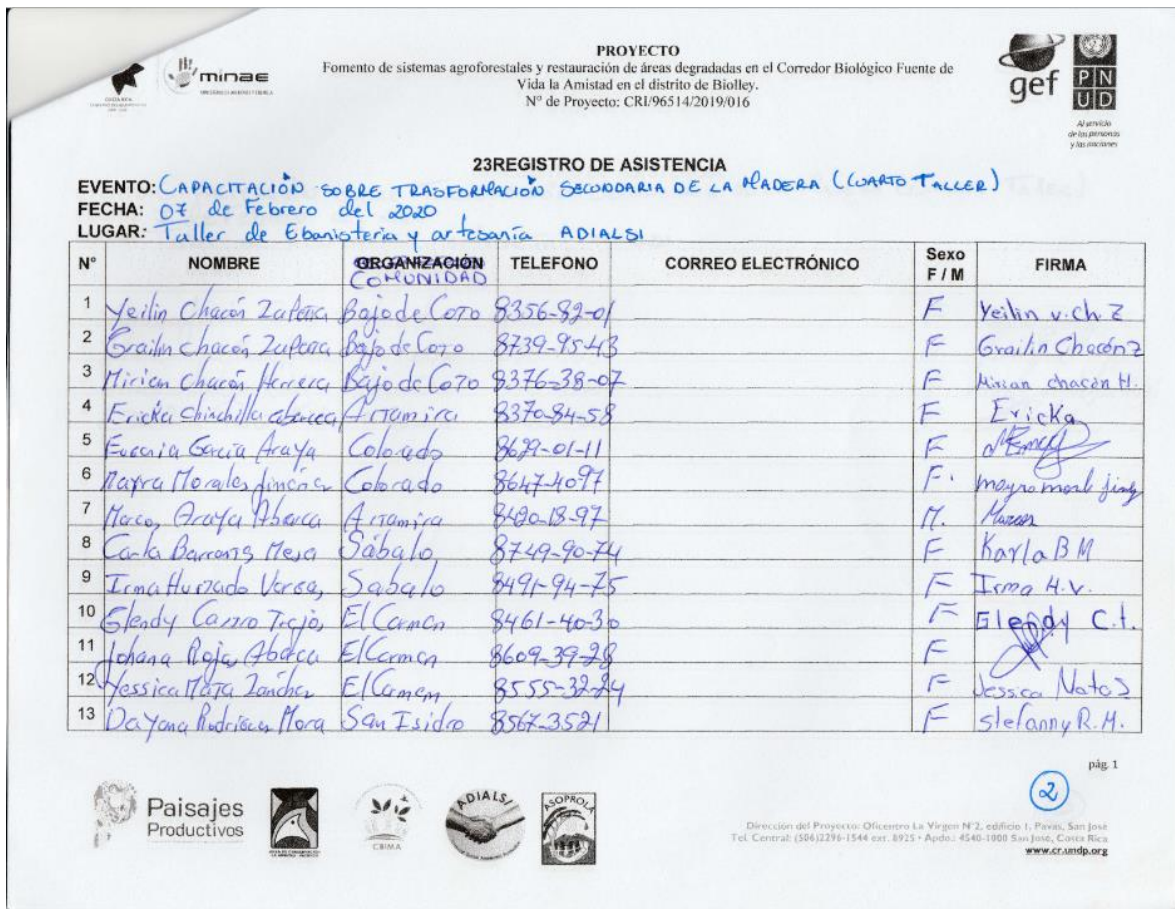 PROYECTO
Fomento de sistemas agroforestales y restauración de áreas degradadas en el Corredor Biológico Fuente de
Vida la Amistad en el distrito de Biolley.
N° de Proyecto: CRI/96514/2019/016
minae
gef
PNUD
Al servicio
de las personas
y las naciones
23REGISTRO DE ASISTENCIA
EVENTO: CAPACITACIÓN SOBRE TRASFORMACIÓN SECUNDARIA DE LA MADERA (CUARTO TALLER)
FECHA: 07 de Febrero del 2020
LUGAR: Taller de Ebanisteria y artesanía ADIALSI
N° NOMBRE ORGANIZACIÓN COMUNIDAD TELEFONO CORREO ELECTRÓNICO Sexo F / M FIRMA
1 Yeilin Chacón Bajo de Coto 8356-82-01 F Yeilin v. Ch Z
2 Grailin Chacón Bajo de Coto 8739-95-43 F Grailin Chacón Z
3 Mirian Chacón Herrera Bajo de Coto 8376-38-07 F Mirian chacón H.
4 Ericka Chinchilla abarca Altamira 8370-84-58 F Ericka
5 Eugenia García Araya Colorado 8629-01-11 F
6 Mayra Morales Jiménez Colorado 8647-4097 F. mayra
7 Marcos Araya Abarca Altamira 8420-18-97 M. Marcos
8 Carla Barrantes Mesa Sábalo 8749-90-74 F Karla B M
9 Irma Hurtado Vargas Sabalo 8491-94-75 F Irma H.V.
10 Glendy Castro Trejos El Carmen 8461-40-30 F Glendy C.t.
11 Johana Rojas Abarca El Carmen 8609-39-28 F
12 Yessica Mata Sánchez El Carmen 8555-32-24 F Jessica Mata S
13 Dayana Rodríguez Mora San Isidro 8567-3521 F Stefanny R.M.
pág. 1
2
Paisajes
Productivos
CBIMA
ADIALSI
ASOPROLA
Dirección del Proyecto: Oficentro La Virgen N°2, edificio 1, Pavas, San José
Tel. Central: (506)2296-1544 ext. 8925 • Apdo.: 4540-1000 San José, Costa Rica
www.cr.undp.org